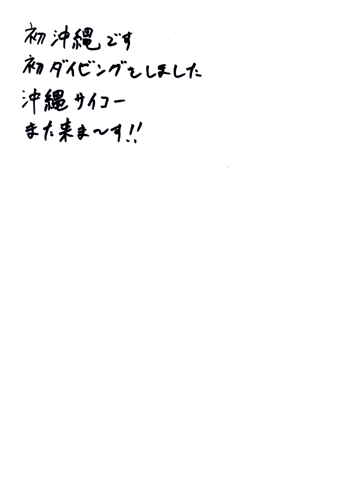 初沖縄です
初ダイビングをしました
沖縄サイコー
また来ま〜す!!